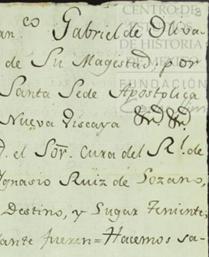 an.co Gabriel de Oliva
de Su Magestad, por
Santa Sede Apostolica
Nueva Viscaya &a. &a.
D. el Sor. Cura del Rl. de
Ygnasio Ruiz de Lozano,
Destino, y Lugar Teniente,
ante fueren = Hacemos sa-
CENTRO DE
ESTUDIOS
DE HISTORIA
FUNDACIÓN